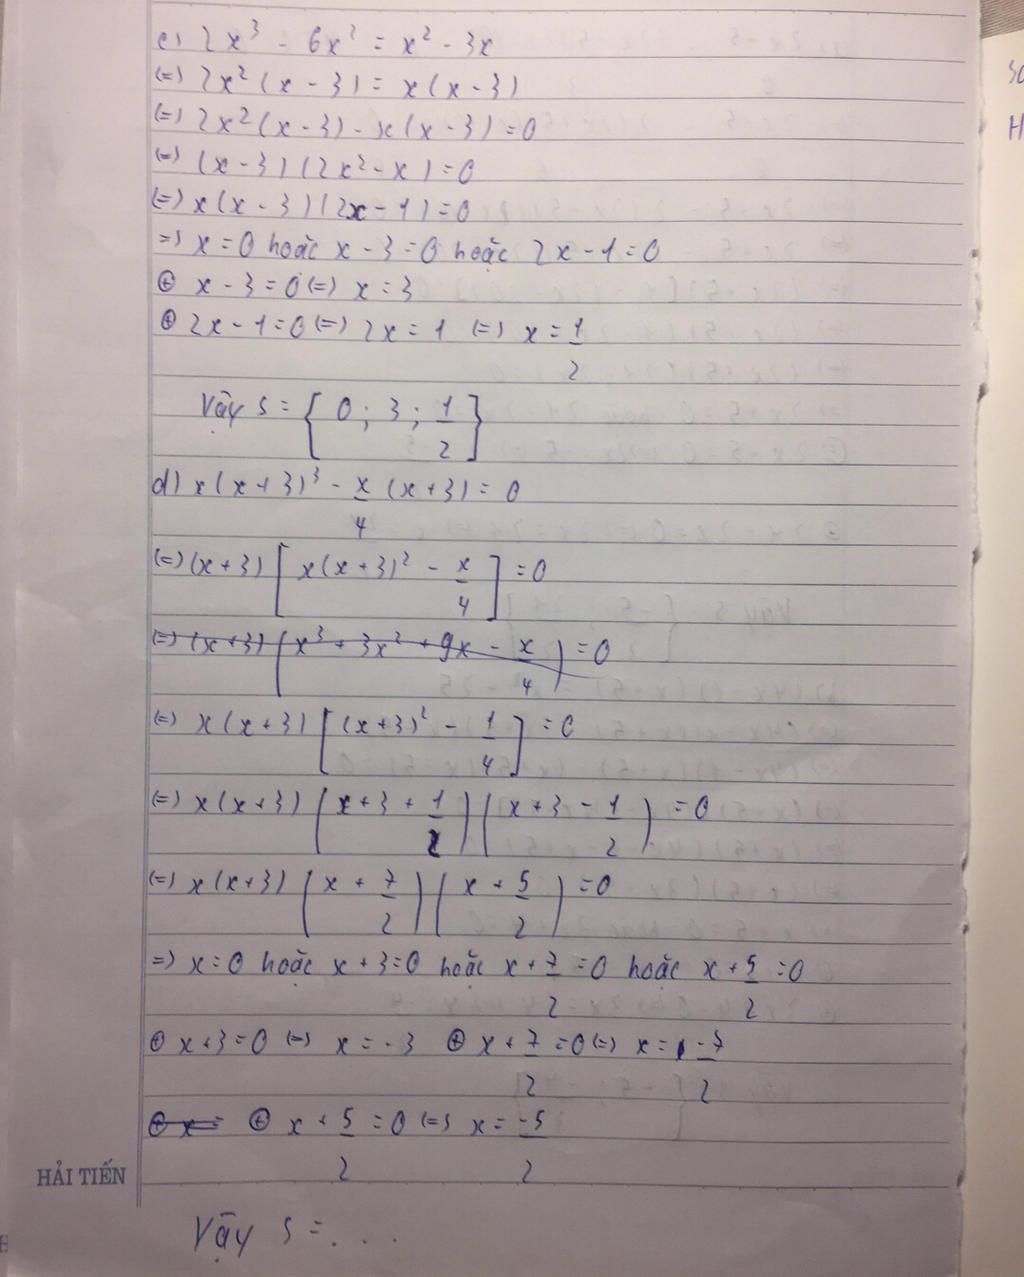 c) 2x³ - 6x² = x² - 3x
(=) 2x² (x - 3) = x (x - 3)
(=) 2x² (x - 3) - x (x - 3) = 0
(=) (x - 3) (2x² - x) = 0
(=) x (x - 3) (2x - 1) = 0
=) x = 0 hoặc x - 3 = 0 hoặc 2x - 1 = 0
⊕ x - 3 = 0 (=) x = 3
⊕ 2x - 1 = 0 (=) 2x = 1 (=) x = 1/2
Vậy S = { 0 ; 3 ; 1/2 }
d) x (x + 3)³ - x/4 (x + 3) = 0
(=) (x + 3) [ x (x + 3)² - x/4 ] = 0
(=) (x + 3) ( x³ + 3x² + 9x - x/4 ) = 0
(=) x (x + 3) [ (x + 3)² - 1/4 ] = 0
(=) x (x + 3) ( x + 3 + 1/2 ) ( x + 3 - 1/2 ) = 0
(=) x (x + 3) ( x + 7/2 ) ( x + 5/2 ) = 0
=) x = 0 hoặc x + 3 = 0 hoặc x + 7/2 = 0 hoặc x + 5/2 = 0
⊕ x + 3 = 0 (=) x = -3 ⊕ x + 7/2 = 0 (=) x = -7/2
⊕ x = ⊕ x + 5/2 = 0 (=) x = -5/2
HẢI TIẾN
Vậy S = . . .